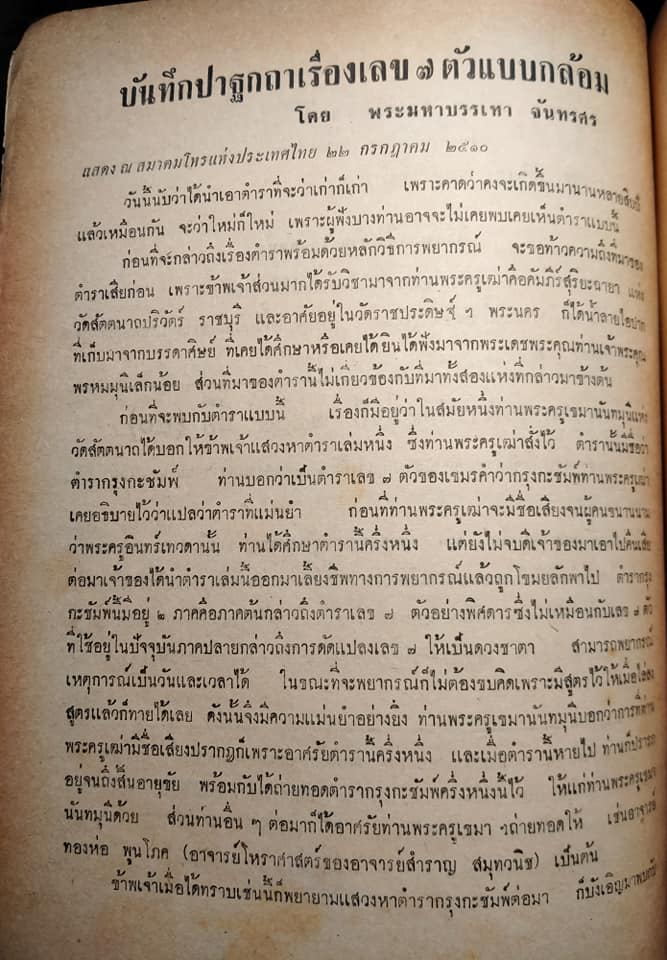 บันทึกปาฐกถาเรื่องเลข ๗ ตัวแบบกล้อม
โดย พระมหาบรรเทา จันทรศร
แสดง ณ สมาคมโหรแห่งประเทศไทย ๒๒ กรกฎาคม ๒๕๑๐
วันนี้นับว่าได้นำเอาตำราที่จะว่าเก่าก็เก่า เพราะคาดว่าคงจะเกิดขึ้นมานานหลายสิบปี
แล้วเหมือนกัน จะว่าใหม่ก็ใหม่ เพราะผู้ฟังบางท่านอาจจะไม่เคยพบเคยเห็นตำราแบบนี้
ก่อนที่จะกล่าวถึงเรื่องตำราพร้อมด้วยหลักวิธีการพยากรณ์ จะขอท้าวความถึงที่มาของ
ตำราเสียก่อน เพราะข้าพเจ้าส่วนมากได้รับวิชามาจากท่านพระครูเฒ่าคือคัมภีร์สุริยะฉายา แห่ง
วัดสัตตนาถปริวัตร์ ราชบุรี และอาศัยอยู่ในวัดราชประดิษฐ์ ฯ พระนคร ก็ได้น้ำลายไอปาก
ที่เก็บมาจากบรรดาศิษย์ ที่เคยได้ศึกษาหรือเคยได้ยินได้ฟังมาจากพระเดชพระคุณท่านเจ้าพระคุณ
พรหมมุนีเล็กน้อย ส่วนที่มาของตำรานี้ไม่เกี่ยวข้องกับที่มาทั้งสองแห่งที่กล่าวมาข้างต้น
ก่อนที่จะพบกับตำราแบบนี้ เรื่องก็มีอยู่ว่าในสมัยหนึ่งท่านพระครูเขมานันทมุนีแห่ง
วัดสัตตนาถได้บอกให้ข้าพเจ้าแสวงหาตำราเล่มหนึ่ง ซึ่งท่านพระครูเฒ่าสั่งไว้ ตำรานั้นมีชื่อว่า
ตำรากรุงกะชัมพ์ ท่านบอกว่าเป็นตำราเลข ๗ ตัวของเขมรคำว่ากรุงกะชัมพ์ท่านพระครูเฒ่า
เคยอธิบายไว้ว่าแปลว่าตำราที่แม่นยำ ก่อนที่ท่านพระครูเฒ่าจะมีชื่อเสียงจนผู้คนขนานนาม
ว่าพระครูอินทร์เทวดานั้น ท่านได้ศึกษาตำรานี้ครึ่งหนึ่ง แต่ยังไม่จบดีเจ้าของมาเอาไปคืนเสีย
ต่อมาเจ้าของได้นำตำราเล่มนี้ออกมาเลี้ยงชีพทางการพยากรณ์แล้วถูกโขมยลักพาไป ตำรากรุง
กะชัมพ์นี้มีอยู่ ๒ ภาคคือภาคต้นกล่าวถึงตำราเลข ๗ ตัวอย่างพิศดารซึ่งไม่เหมือนกับเลข ๗ ตัว
ที่ใช้อยู่ในปัจจุบันภาคปลายกล่าวถึงการดัดแปลงเลข ๗ ให้เป็นดวงชาตา สามารถพยากรณ์
เหตุการณ์เป็นวันและเวลาได้ ในขณะที่จะพยากรณ์ก็ไม่ต้องขบคิดเพราะมีสูตรไว้ให้เมื่อไล่ลง
สูตรแล้วก็ทายได้เลย ดังนั้นจึงมีความแม่นยำอย่างยิ่ง ท่านพระครูเขมานันทมุนีบอกว่าการที่ท่าน
พระครูเฒ่ามีชื่อเสียงปรากฏก็เพราะอาศรัยตำรานี้ครึ่งหนึ่ง และเมื่อตำรานี้หายไป ท่านก็ปรารภ
อยู่จนถึงสิ้นอายุขัย พร้อมกับได้ถ่ายทอดตำรากรุงกะชัมพ์ครึ่งหนึ่งนี้ไว้ ให้แก่ท่านพระครูเขมา
นันทมุนีด้วย ส่วนท่านอื่น ๆ ต่อมาก็ได้อาศรัยท่านพระครูเขมา ฯถ่ายทอดให้ เช่นอาจารย์
ทองห่อ พูนโภค (อาจารย์โหราศาสตร์ของอาจารย์สำราญ สมุทวนิช) เป็นต้น
ข้าพเจ้าเมื่อได้ทราบเช่นนี้ก็พยายามแสวงหาตำรากรุงกะชัมพ์ต่อมา ก็บังเอิญมาพบกับ